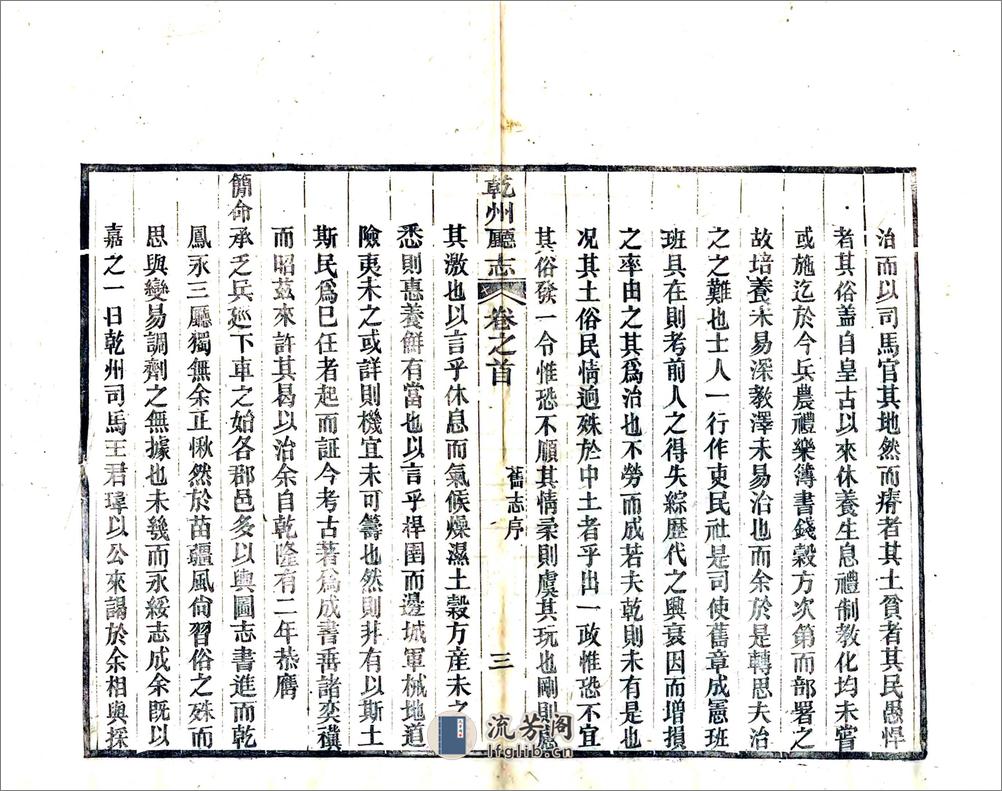 治而以司馬官其地然而瘠者其土貧者其民愚悍
者其俗蓋自皇古以來休養生息禮制教化均未嘗
或施迄於今兵農禮樂簿書錢穀方次第而部署之
故培養未易深教澤未易治也而余於是轉思夫治
之之難也士人一行作吏民社是司使舊章成憲班
班具在則考前人之得失綜歷代之興衰因而增損
之率由之其爲治也不勞而成若夫乾則未有是也
况其土俗民情逈殊於中土者乎出一政惟恐不宜
其俗發一令惟恐不順其情柔則虞其玩也剛則慮
乾州廳志 卷之首 舊志序 三
其激也以言乎休息而氣候燥濕土穀方産未之
悉則惠養鮮有當也以言乎捍圉而邊城軍械地道
險夷未之或詳則機宜未可籌也然則非有以斯土
斯民爲已任者起而証今考古著爲成書垂諸奕禩
而昭茲來許其曷以治余自乾隆有二年恭膺
簡命承乏兵廵下車之始各郡邑多以輿圖志書進而乾
鳳永三廳獨無余正愀然於苗疆風尙習俗之殊而
思與變易調劑之無據也未幾而永綏志成余旣以
嘉之一日乾州司馬王君瑋以公來謁於余相與採
流芳阁
lfglib.cn